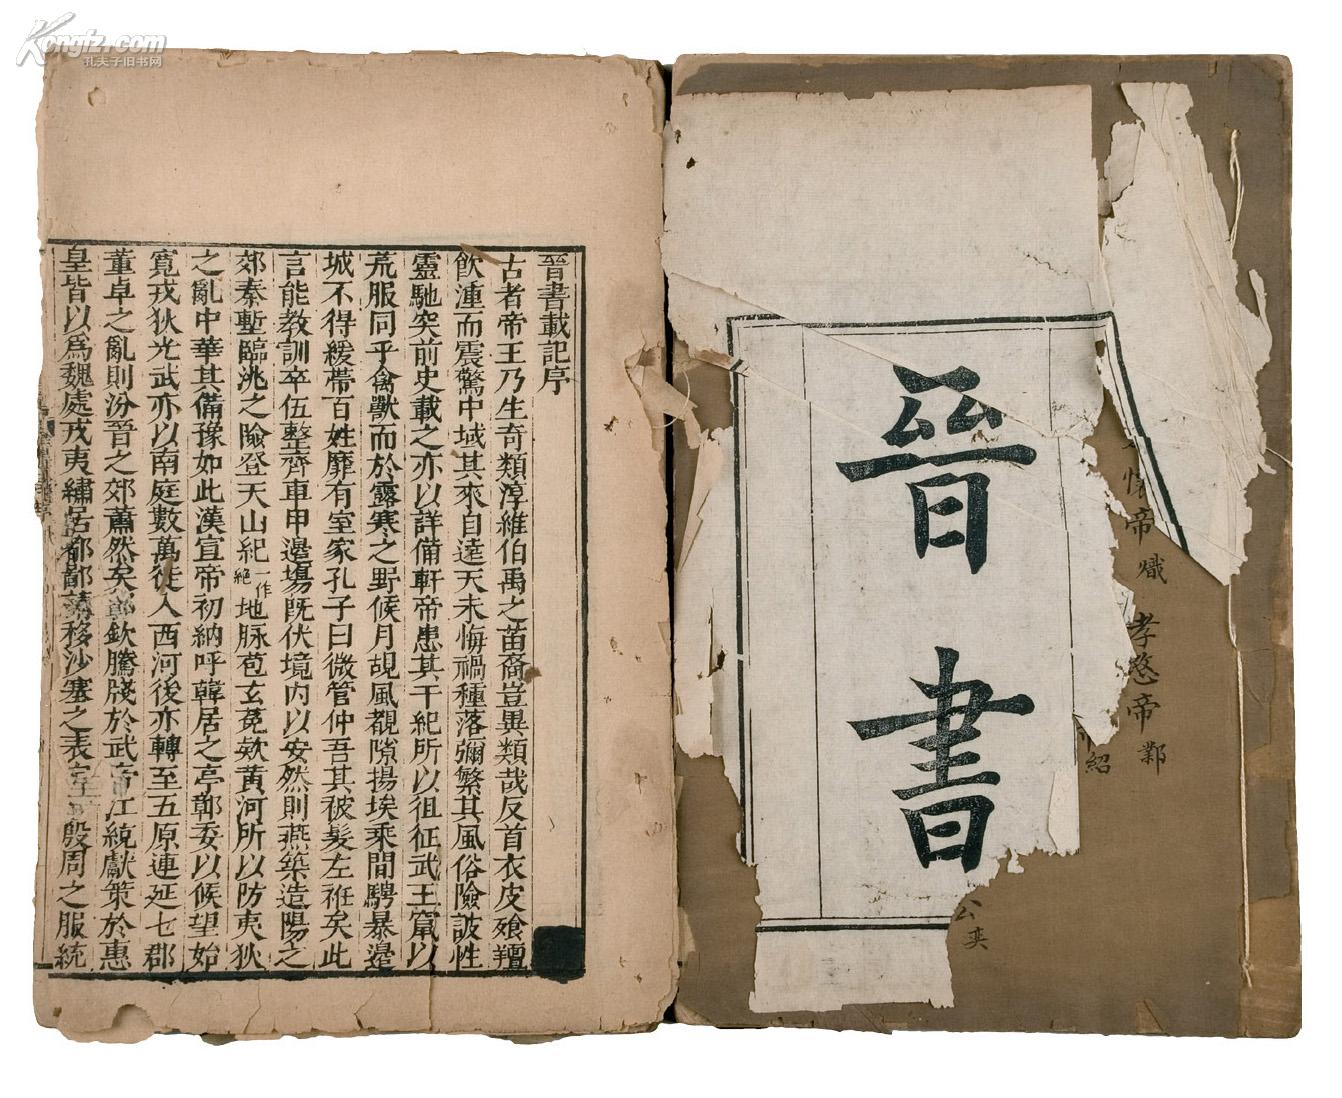 Kongfz.com
孔夫子旧书网
晉書
懷帝熾
孝愍帝鄴
紹
公奕
晉書載記序
古者帝王乃生奇類淳維伯禹之苗裔豈異類哉反首衣皮飱羶
飲湩而震驚中域其來自遠天未悔禍種落彌繁其風俗險詖性
靈馳突前史載之亦以詳備軒帝患其干紀所以徂征武王竄以
荒服同乎禽獸而於露寒之野候月覘風覩隙揚埃乘間騁暴邊
城不得緩帶百姓靡有室家孔子曰微管仲吾其被髮左袵矣此
言能教訓卒伍整齊車甲邊場既伏境內以安然則燕築造陽之
郊秦塹臨洮之險登天山紀一作絕地脉苞玄菟欵黃河所以防夷狄
之亂中華其備豫如此漢宣帝初納呼韓居之亭鄣委以候望始
寬戎狄光武亦以南庭數萬徙入西河後亦轉至五原連延七郡
董卓之亂則汾晉之郊蕭然矣郭欽騰牋於武帝江統獻策於惠
皇皆以爲魏處戎夷繡居都鄙請移沙塞之表定一殷周之服統